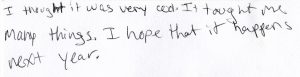 I thought it was very cool. It taught me
many things. I hope that it happens
next year.